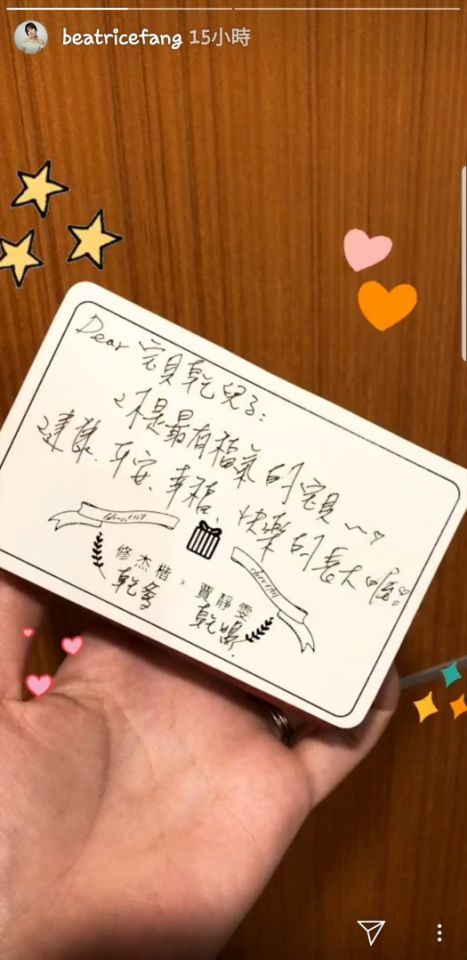 beatricefang 15小時
Dear 宝貝乾兒子:
你是最有福氣的宝貝~♡
健康、平安、幸福、快樂的長大喔♡
修杰楷 × 賈靜雯
乾爹 乾媽